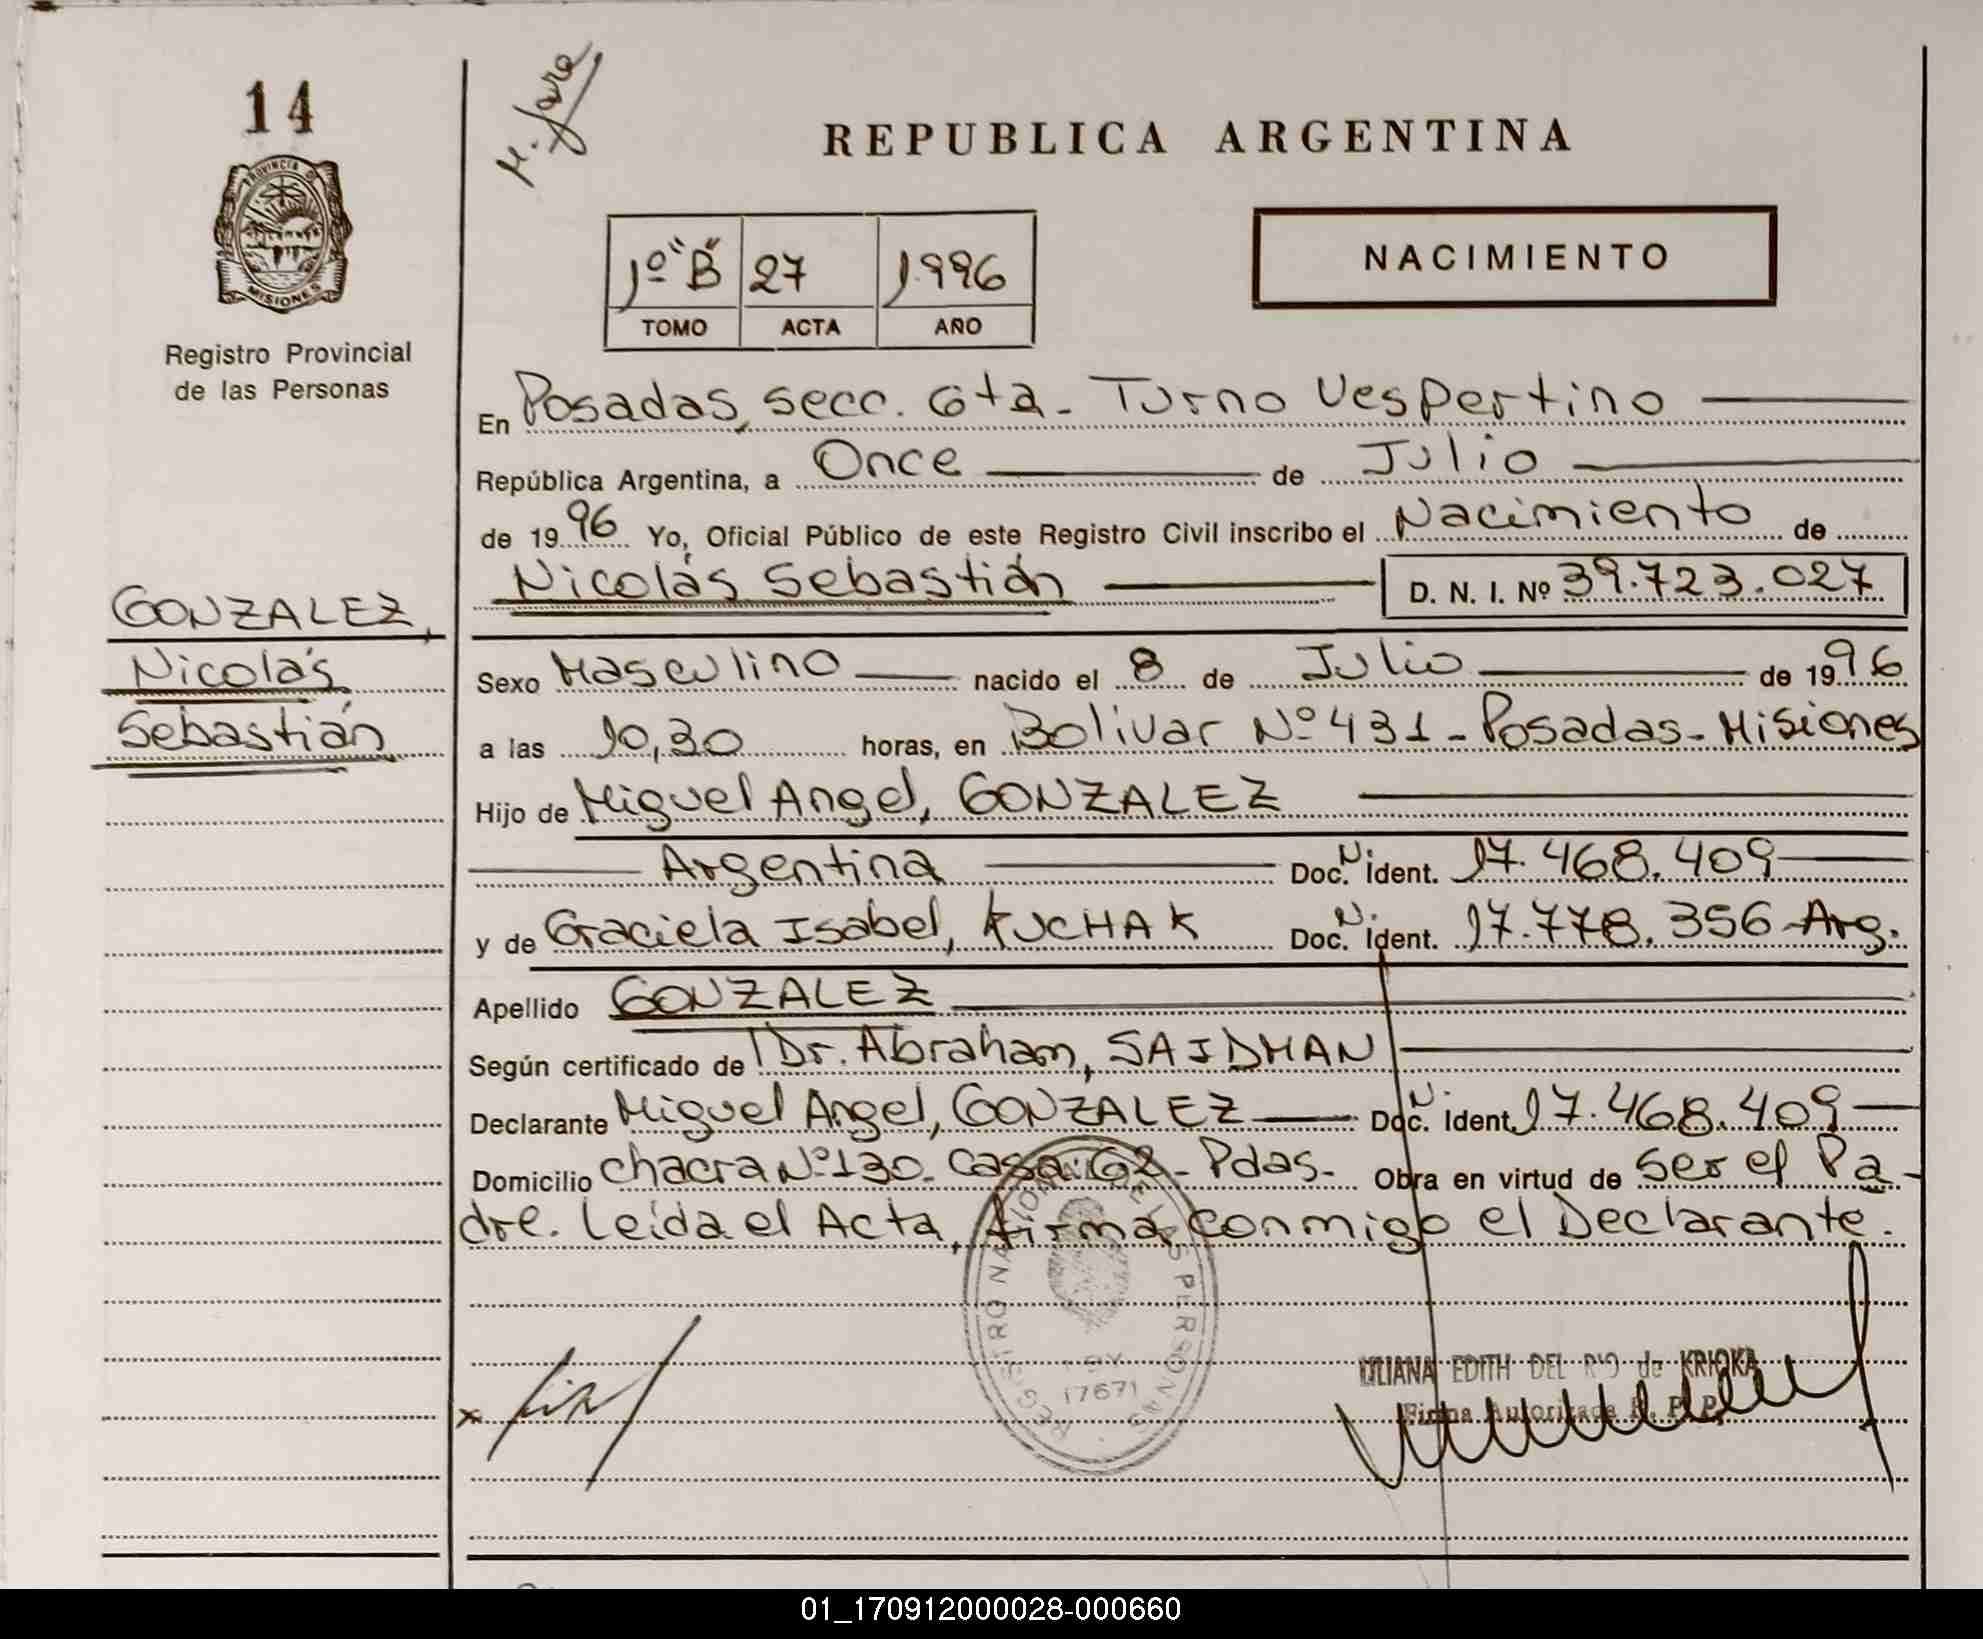 14
M. Jara
REPUBLICA ARGENTINA
PROVINCIA DE
MISIONES
Registro Provincial
de las Personas
1º "B" 27 1996
TOMO ACTA AÑO
NACIMIENTO
En Posadas, secc. 6ta- Turno Vespertino
República Argentina, a Once de Julio
de 1996 Yo, Oficial Público de este Registro Civil inscribo el Nacimiento de
Nicolás Sebastián D. N. I. Nº 39.723.027
GONZALEZ,
Nicolás
Sebastián
Sexo Masculino nacido el 8 de Julio de 1996
a las 10,30 horas, en Bolivar Nº 431 - Posadas - Misiones
Hijo de Miguel Angel, GONZALEZ
Argentina Doc. N. ident. 17.468.409
y de Graciela Isabel, KUCHAK Doc. N. ident. 17.778.356 - Arg.
Apellido GONZALEZ
Según certificado de Dr. Abraham, SAIDMAN
Declarante Miguel Angel, GONZALEZ Doc. N. ident. 17.468.409
Domicilio chacra Nº 130- Casa: 62- Pdas- Obra en virtud de ser el Pa-
dre. Leída el Acta, firma conmigo el Declarante.
REGISTRO NACIONAL DE LAS PERSONAS
LEY
17671
LILIANA EDITH DEL RIO de KRIOKA
Firma Autorizada R. P. P.
01_170912000028-000660